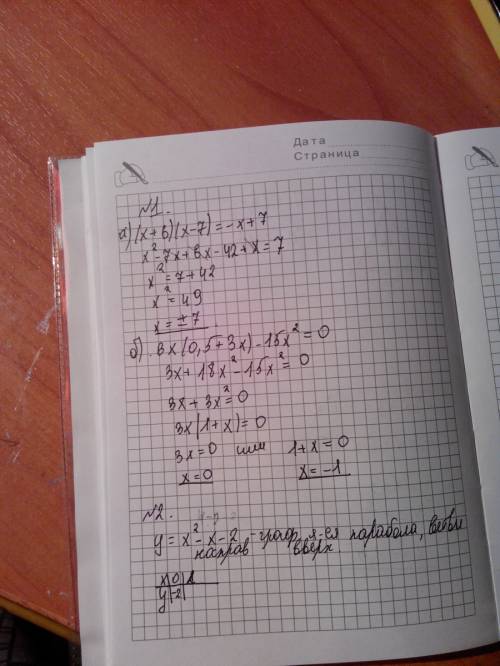 Дата
Страница
№1.
а) (x+6)(x-7)=-x+7
x²-7x+6x-42+x=7
x²=7+42
x²=49
x=±7
б) 6x(0,5+3x)-15x²=0
3x+18x²-15x²=0
3x+3x²=0
3x(1+x)=0
3x=0 или 1+x=0
x=0 x=-1
№2.
y=x²-x-2 -граф. я-ся парабола, ветви
направ вверх
x|0|
y|-2|